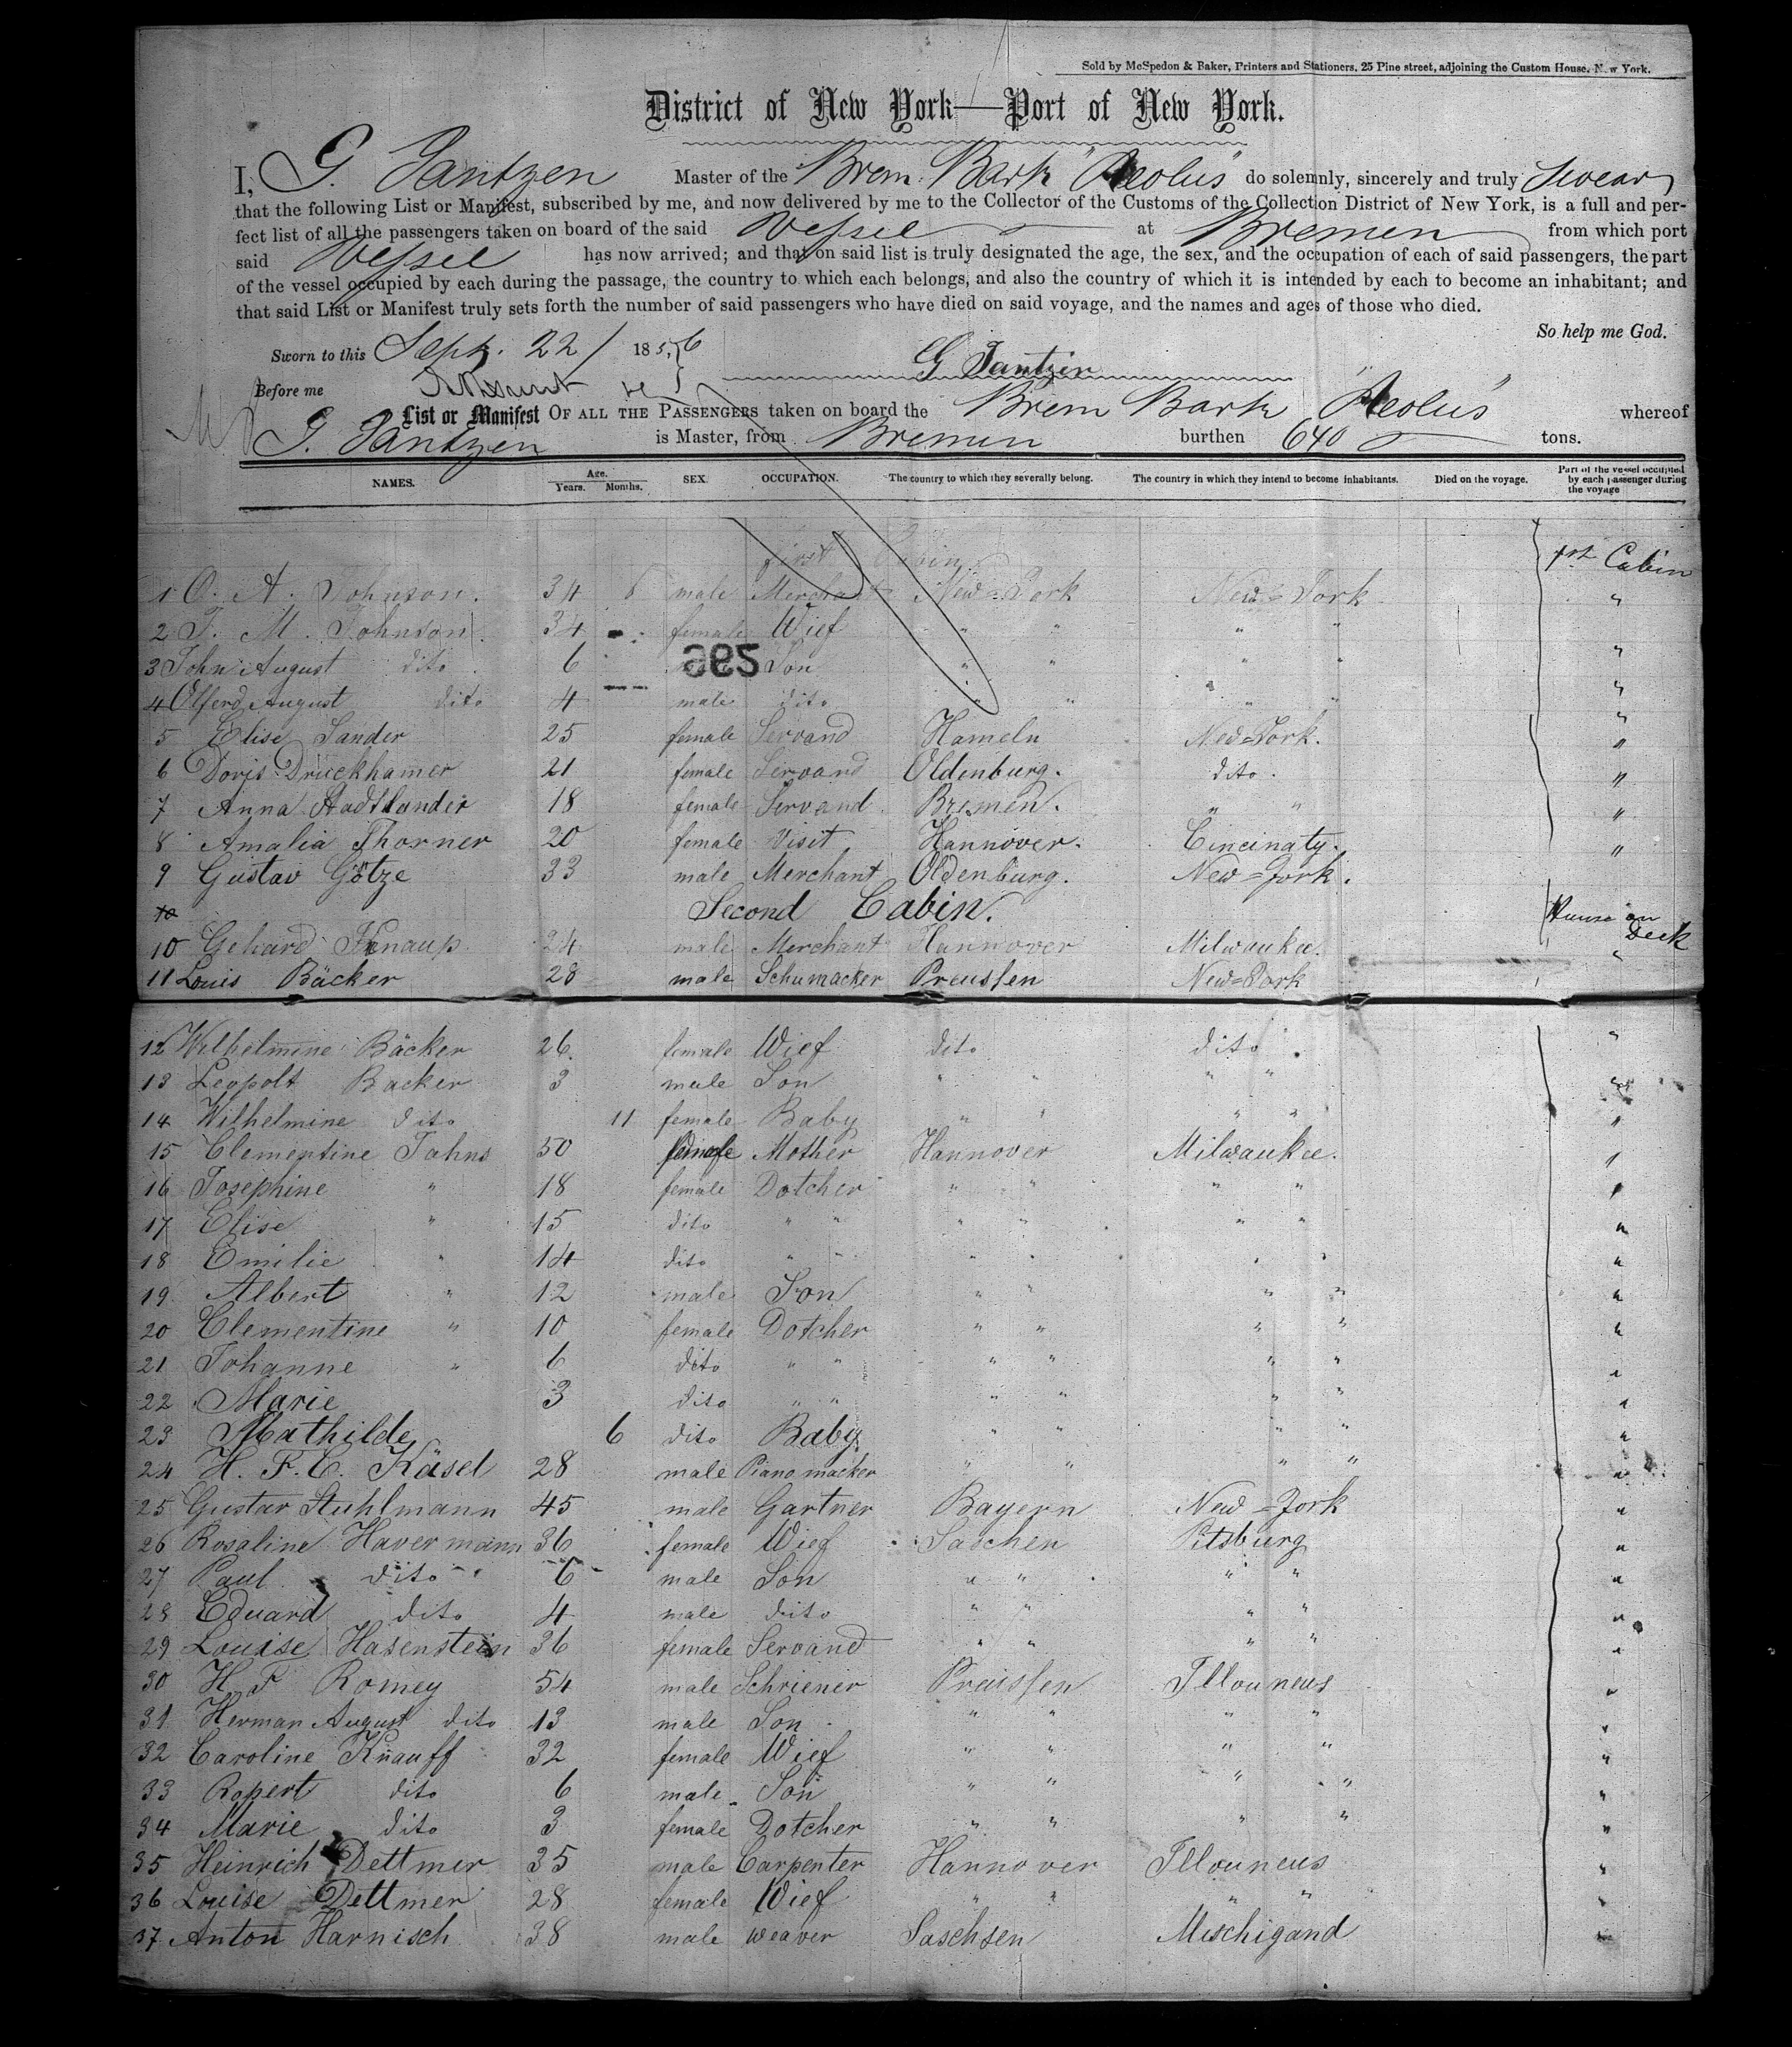 Sold by McSpedon & Baker, Printers and Stationers, 25 Pine street, adjoining the Custom House, New York.
District of New York—Port of New York.
I, G. Jantzen Master of the Brem. Bark "Aeolus" do solemnly, sincerely and truly swear
that the following List or Manifest, subscribed by me, and now delivered by me to the Collector of the Customs of the Collection District of New York, is a full and per-
fect list of all the passengers taken on board of the said Vessel at Bremen from which port
said Vessel has now arrived; and that on said list is truly designated the age, the sex, and the occupation of each of said passengers, the part
of the vessel occupied by each during the passage, the country to which each belongs, and also the country of which it is intended by each to become an inhabitant; and
that said List or Manifest truly sets forth the number of said passengers who have died on said voyage, and the names and ages of those who died.
So help me God.
Sworn to this Sept. 22 / 1856
G Jantzen
Before me
List or Manifest OF ALL THE PASSENGERS taken on board the Brem Bark "Aeolus" whereof
G. Jantzen is Master, from Bremen burthen 640 tons.
NAMES. Age. Years. Months. SEX. OCCUPATION. The country to which they severally belong. The country in which they intend to become inhabitants. Died on the voyage. Part of the vessel occupied by each passenger during the voyage
first Cabin 1st Cabin
1 O. A. Johnson. 34 male Merchant New=York New=York "
2 J. M. Johnson. 34 female Wief " " " "
3 John August dito 6 Son " " " "
4 Olferd August dito 4 male dito " " " "
5 Elise Sander 25 female Servand Hameln New=York. "
6 Doris Drückhamer 21 female Servand Oldenburg. dito. "
7 Anna Stadtlander 18 female Servand Bremen. " " "
8 Amalia Thorner 20 female Visit Hannover. Cincinaty. "
9 Gustav Götze 33 male Merchant Oldenburg. New=York. "
10 Second Cabin. House on Deck
10 Gehard Knaup 24 male Merchant Hannover Milwaukee. "
11 Louis Bäcker 28 male Schumacker Preussen New=York
12 Wilhelmine Bäcker 26. female Wief dito dito. "
13 Leopolt Backer 3 male Son " " " " "
14 Wilhelmine dito 11 female Baby " " " " "
15 Clementine Jahns 50 female Mother Hannover Milwaukee. "
16 Josephine " 18 female Dotcher " " " " "
17 Elise " 15 dito " " " " " " "
18 Emilie " 14 dito " " " " " " "
19 Albert " 12 male Son " " " " "
20 Clementine " 10 female Dotcher " " " " "
21 Johanne " 6 dito " " " " " " "
22 Marie 3 dito " " " " " " "
23 Mathilde 6 dito Baby " " " " "
24 H. F. C. Käsel 28 male Piano macker " " " " "
25 Gustav Stuhlmann 45 male Gartner Bayern New=York "
26 Rosaline Havermann 36 female Wief Saschen Pitsburg "
27 Paul dito 6 male Son " " " " "
28 Eduard dito 4 male dito " " " " "
29 Louise Hasenstein 36 female Servand " " " " "
30 H F Romey 54 male Schriener Preussen Illouneus "
31 Herman August dito 13 male Son " " " " "
32 Caroline Knauff 32 female Wief " " " " "
33 Ropert dito 6 male Son " " " " "
34 Marie dito 3 female Dotcher " " " " "
35 Heinrich Dettmer 35 male Carpenter Hannover Illouneus "
36 Louise Dettmer 28 female Wief " " " " "
37 Anton Harnisch 38 male weaver Saschsen Mischigand "